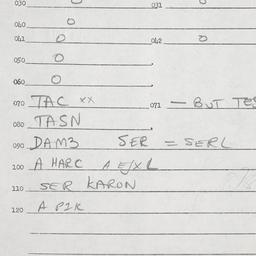 030 O 031 O
040 O
041 O 042 O
050 O
060 O
070 TAC xx 071 — BUT TES
080 TASN
090 DAM3 SER = SERL
100 A HARC A E/X L
110 SER KARON
120 A P2K